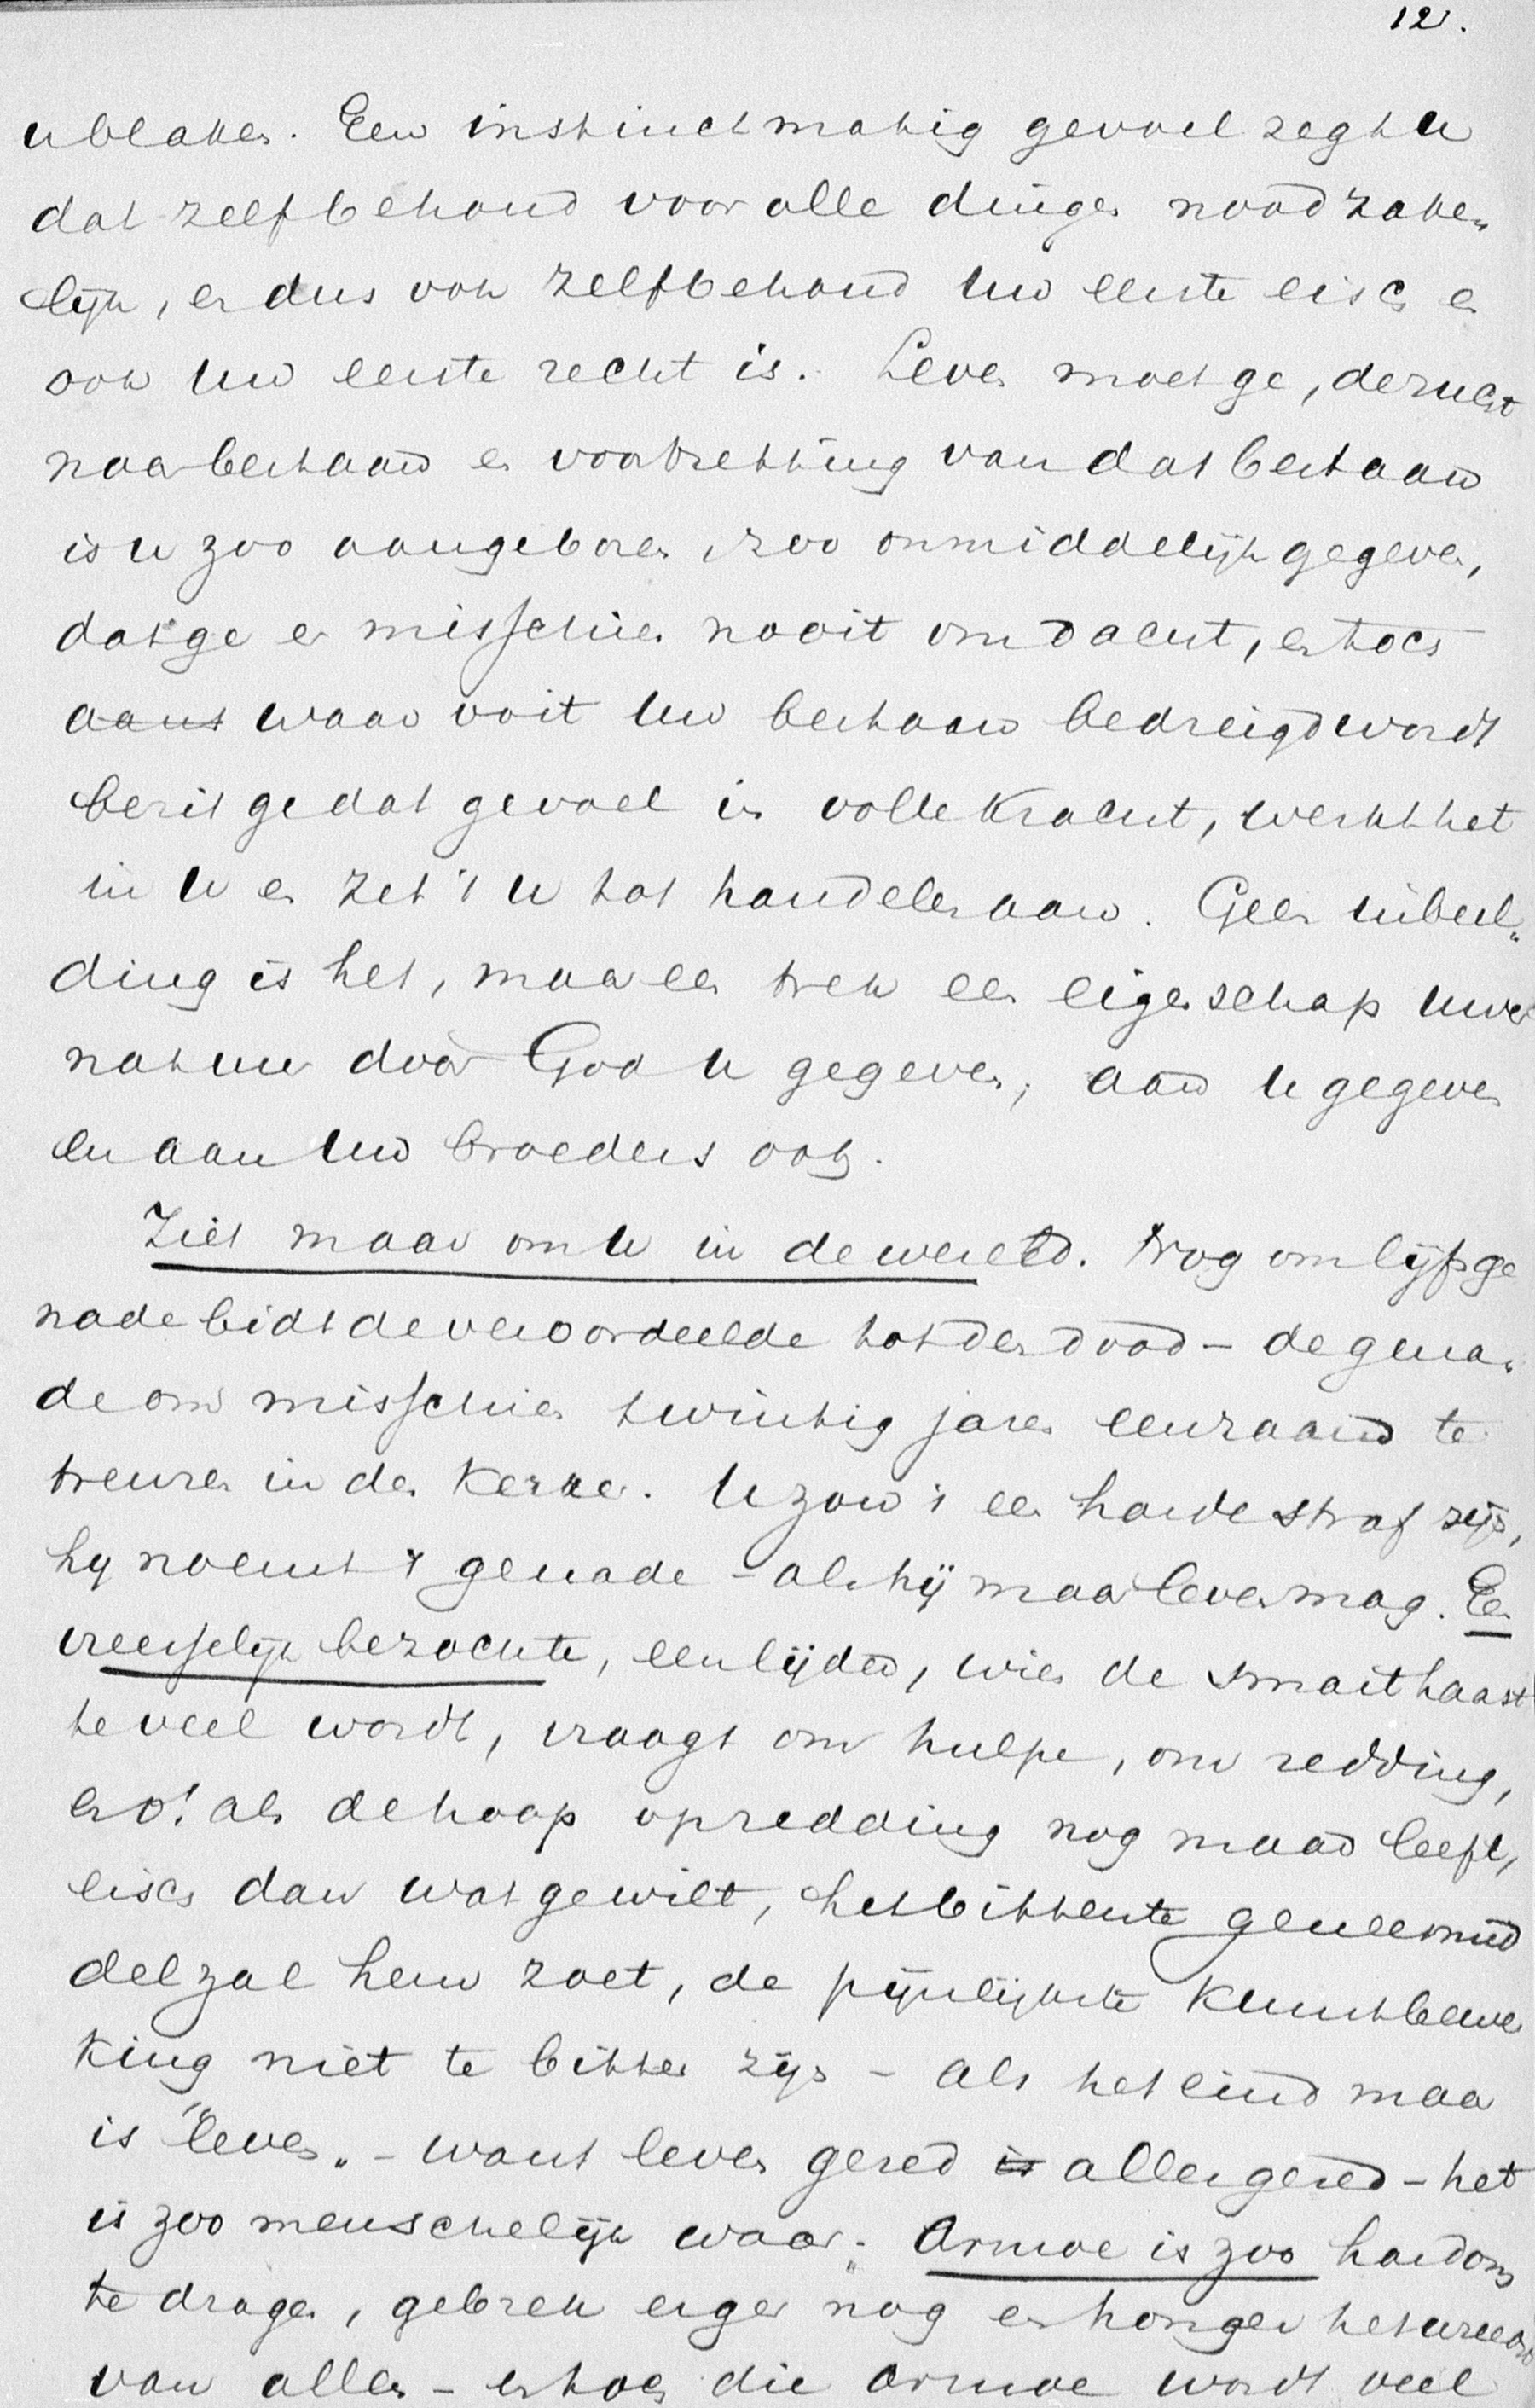 12.
u blaken. Een instinctmatig gevoel zegt u
dat zelfbehoud voor alle dingen noodzake„
lijk, en dus ook zelfbehoud uw eerste eisch en
ook uw eerste recht is. Leven moet ge, de zucht
naar bestaan en voortzetting van dat bestaan
is u zoo aangeboren, zoo onmiddelijk gegeven,
dat ge er misschien nooit om dacht, en toch
waar ooit uw bestaan bedreigd wordt
bezit ge dat gevoel in volle kracht, werkt het
in u en zet 't u tot handelen aan. Geen inbeel„
ding is het, maar een trek een eigenschap uwer
natuur door God u gegeven, aan u gegeven
en aan uw broeders ook.
Ziet maar om u in de wereld. Nog om lijfsge
nade bidt de veroordeelde tot den dood – de gena„
de om misschien twintig jaren eenzaam te
treuren in den kerker. U zou 't een harde straf zijn,
hij noemt 't genade – als hij maar leven mag. Een
vreeselijk bezochte, een lijder, wien de smart haast
te veel wordt, vraagt om hulpe, om redding,
en o! als de hoop op redding nog maar leeft,
eisch dan wat ge wilt, het bitterste geneesmid
del zal hem zoet, de pijnlijkste kunstbewer
king niet te bitter zijn – als het eind maar
is „leven„ – want leven gered is alles gered – het
is zoo menschelijk waar. Armoe is zoo hard om
te dragen, gebrek erger nog en honger het wreedst
van alles – en toch die armoe wordt veel